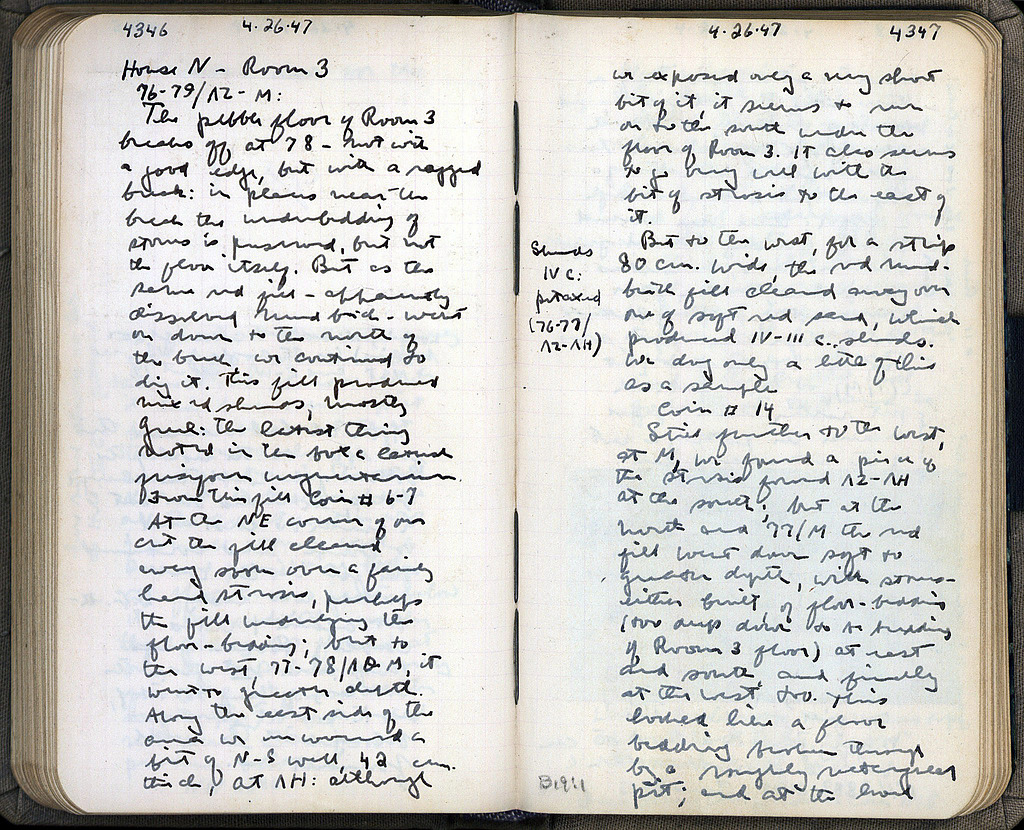 4346 4·26·47
House N - Room 3
76-79/ΛΖ - M:
The pebble floor of Room 3
breaks off at 78 - not with
a good edge, but with a ragged
break: in places near the
break the underbedding of
stones is preserved, but not
the floor itself. But as the
same red fill - apparently
dissolved mud brick - went
on down to the north of
the break we continued to
dig it. This fill produced
mixed sherds, mostly
Greek: the latest thing
noted in the box a
fusiform unguentarium.
From this fill Coin # 6-7
At the NE corner of our
cut the fill cleaned
away soon over a fairly
hard strosis, perhaps
the fill underlying the
floor-bedding; but to
the west, 77-78/ M, it
went to greater depth.
Along the east side of the
area we uncovered a
bit of N-S wall, 42 cm.
thick, at ΛΗ: although
4·26·47 4347
we exposed only a very short
bit of it, it seems to run
on to the south under the
floor of Room 3. It also seems
to go very well with the
bit of strosis to the east of
it.
But to the west, for a strip
80 cm. wide, the red mud-
brick fill cleaned away over
one of soft red sand, which
produced IV-III c. sherds.
We dug only a little of this
as a sample
Coin # 14
Sherds
IV C:
(76-77/
ΛΖ-ΛΗ)
Still further to the west,
at M, we found a piece of
the strosis found ΛΖ-ΛΗ
at the south; but at the
north and 77/M the red
fill went down soft to
greater depth, with stones -
either built, or floor-bedding
(too deep down to be bedding
of Room 3 floor) at east
and south, and finally
at the west, too. This
looked like a floor
bedding broken through
by a roughly rectangular
pit; and at the level